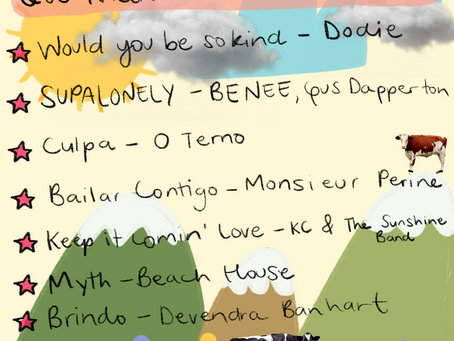 Would you be so kind - Dodie
SUPALONELY - BENEE, Gus Dapperton
Culpa - O Terno
Bailar Contigo - Monsieur Periné
Keep it Comin' Love - KC & The Sunshine Band
Myth - Beach House
Brindo - Devendra Banhart